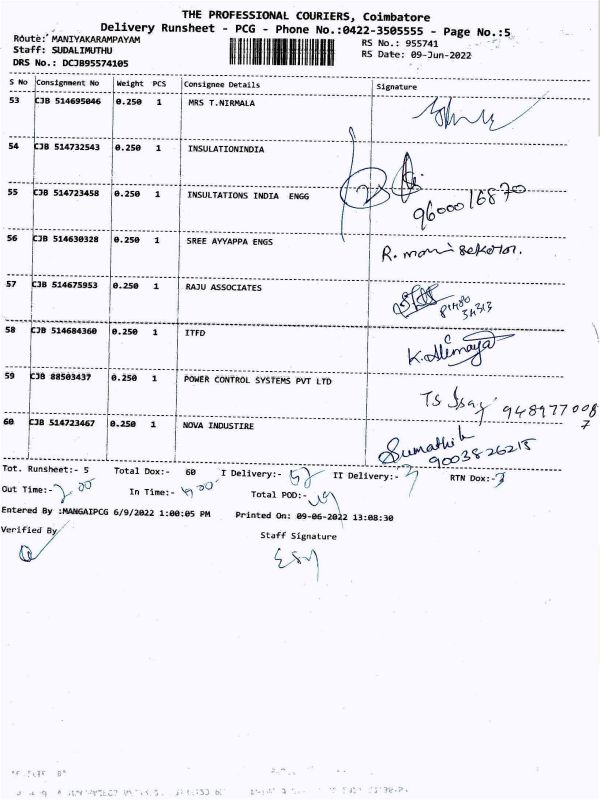 THE PROFESSIONAL COURIERS, Coimbatore
Delivery Runsheet - PCG - Phone No.:0422-3505555 - Page No.:5
Route: MANIYAKARAMPAYAM RS No.: 955741
Staff: SUDALIMUTHU RS Date: 09-Jun-2022
DRS No.: DCJB95574105
S No Consignment No Weight PCS Consignee Details Signature
53 CJB 514695046 0.250 1 MRS T.NIRMALA
54 CJB 514732543 0.250 1 INSULATIONINDIA
55 CJB 514723458 0.250 1 INSULTATIONS INDIA ENGG 9600016870
56 CJB 514630328 0.250 1 SREE AYYAPPA ENGS
57 CJB 514675953 0.250 1 RAJU ASSOCIATES
58 CJB 514684360 0.250 1 ITFD
59 CJB 88503437 0.250 1 POWER CONTROL SYSTEMS PVT LTD
60 CJB 514723467 0.250 1 NOVA INDUSTIRE 9003826215
Tot. Runsheet:- 5 Total Dox:- 60 I Delivery:- II Delivery:- RTN Dox:-
Out Time:- In Time:- Total POD:-
Entered By :MANGAIPCG 6/9/2022 1:00:05 PM Printed On: 09-06-2022 13:08:30
Verified By Staff Signature